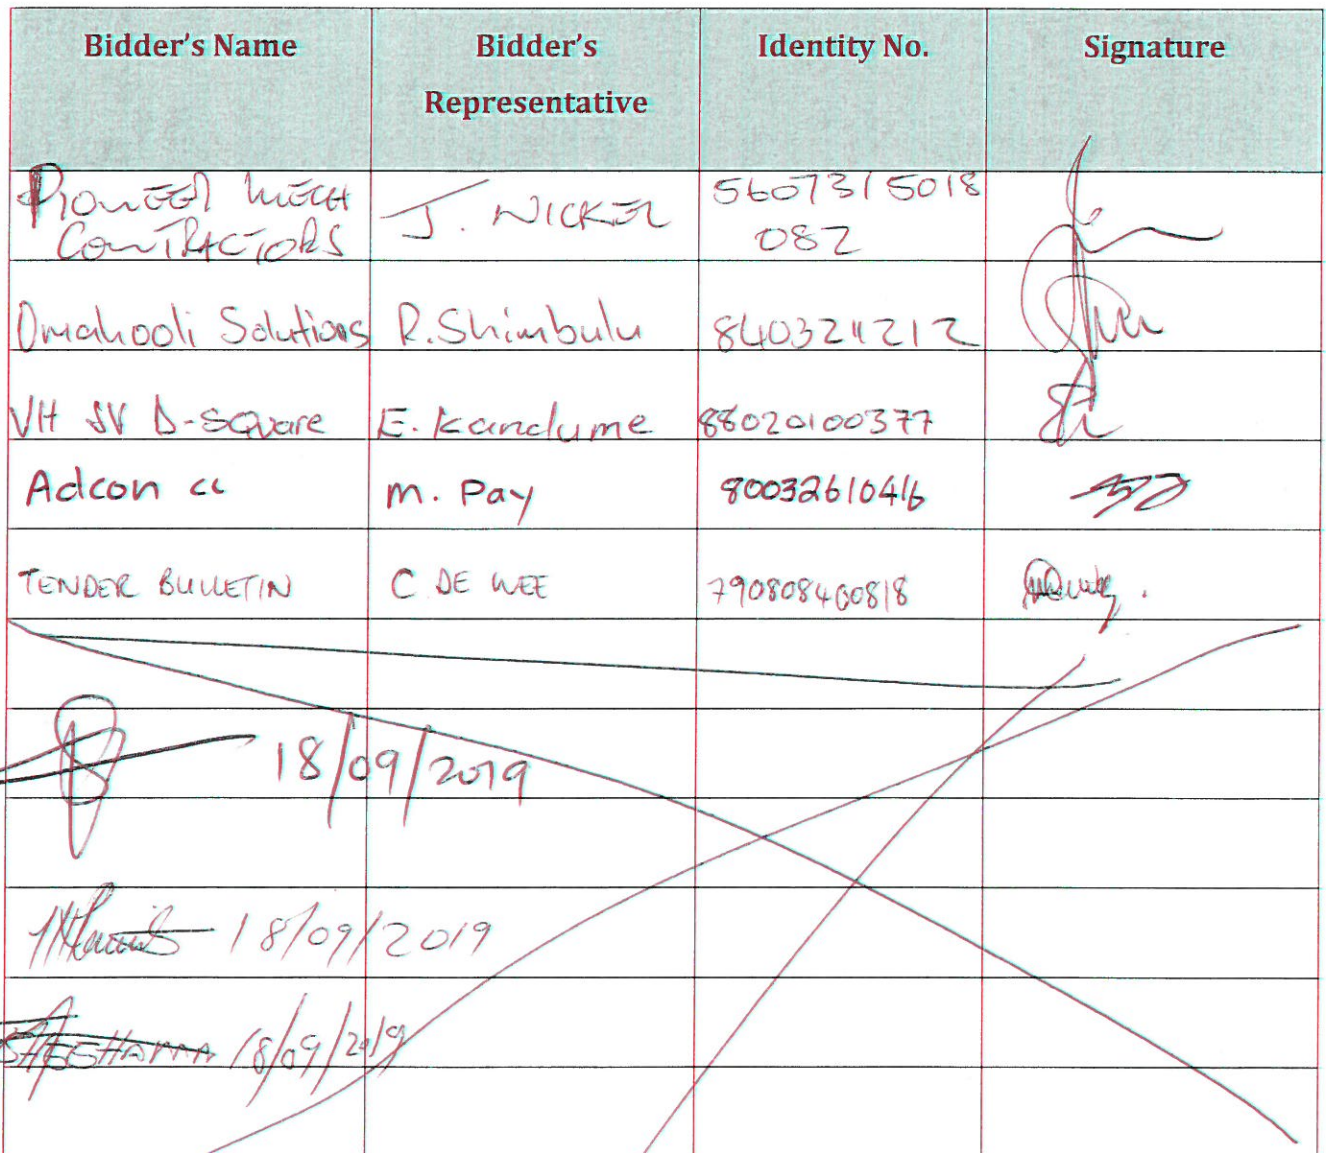 Bidder's Name Bidder's Representative Identity No. Signature
PIONEER MECH CONTRACTORS J. NICKEL 5607315018 082
Omahooli Solutions R.Shimbulu 84032411212
VH JV D-square E. Kandume 88020100377
Adcon cc M. Pay 80032610416
TENDER BULLETIN C DE WEE 790808400818
18/09/2019
18/09/2019
18/09/2019